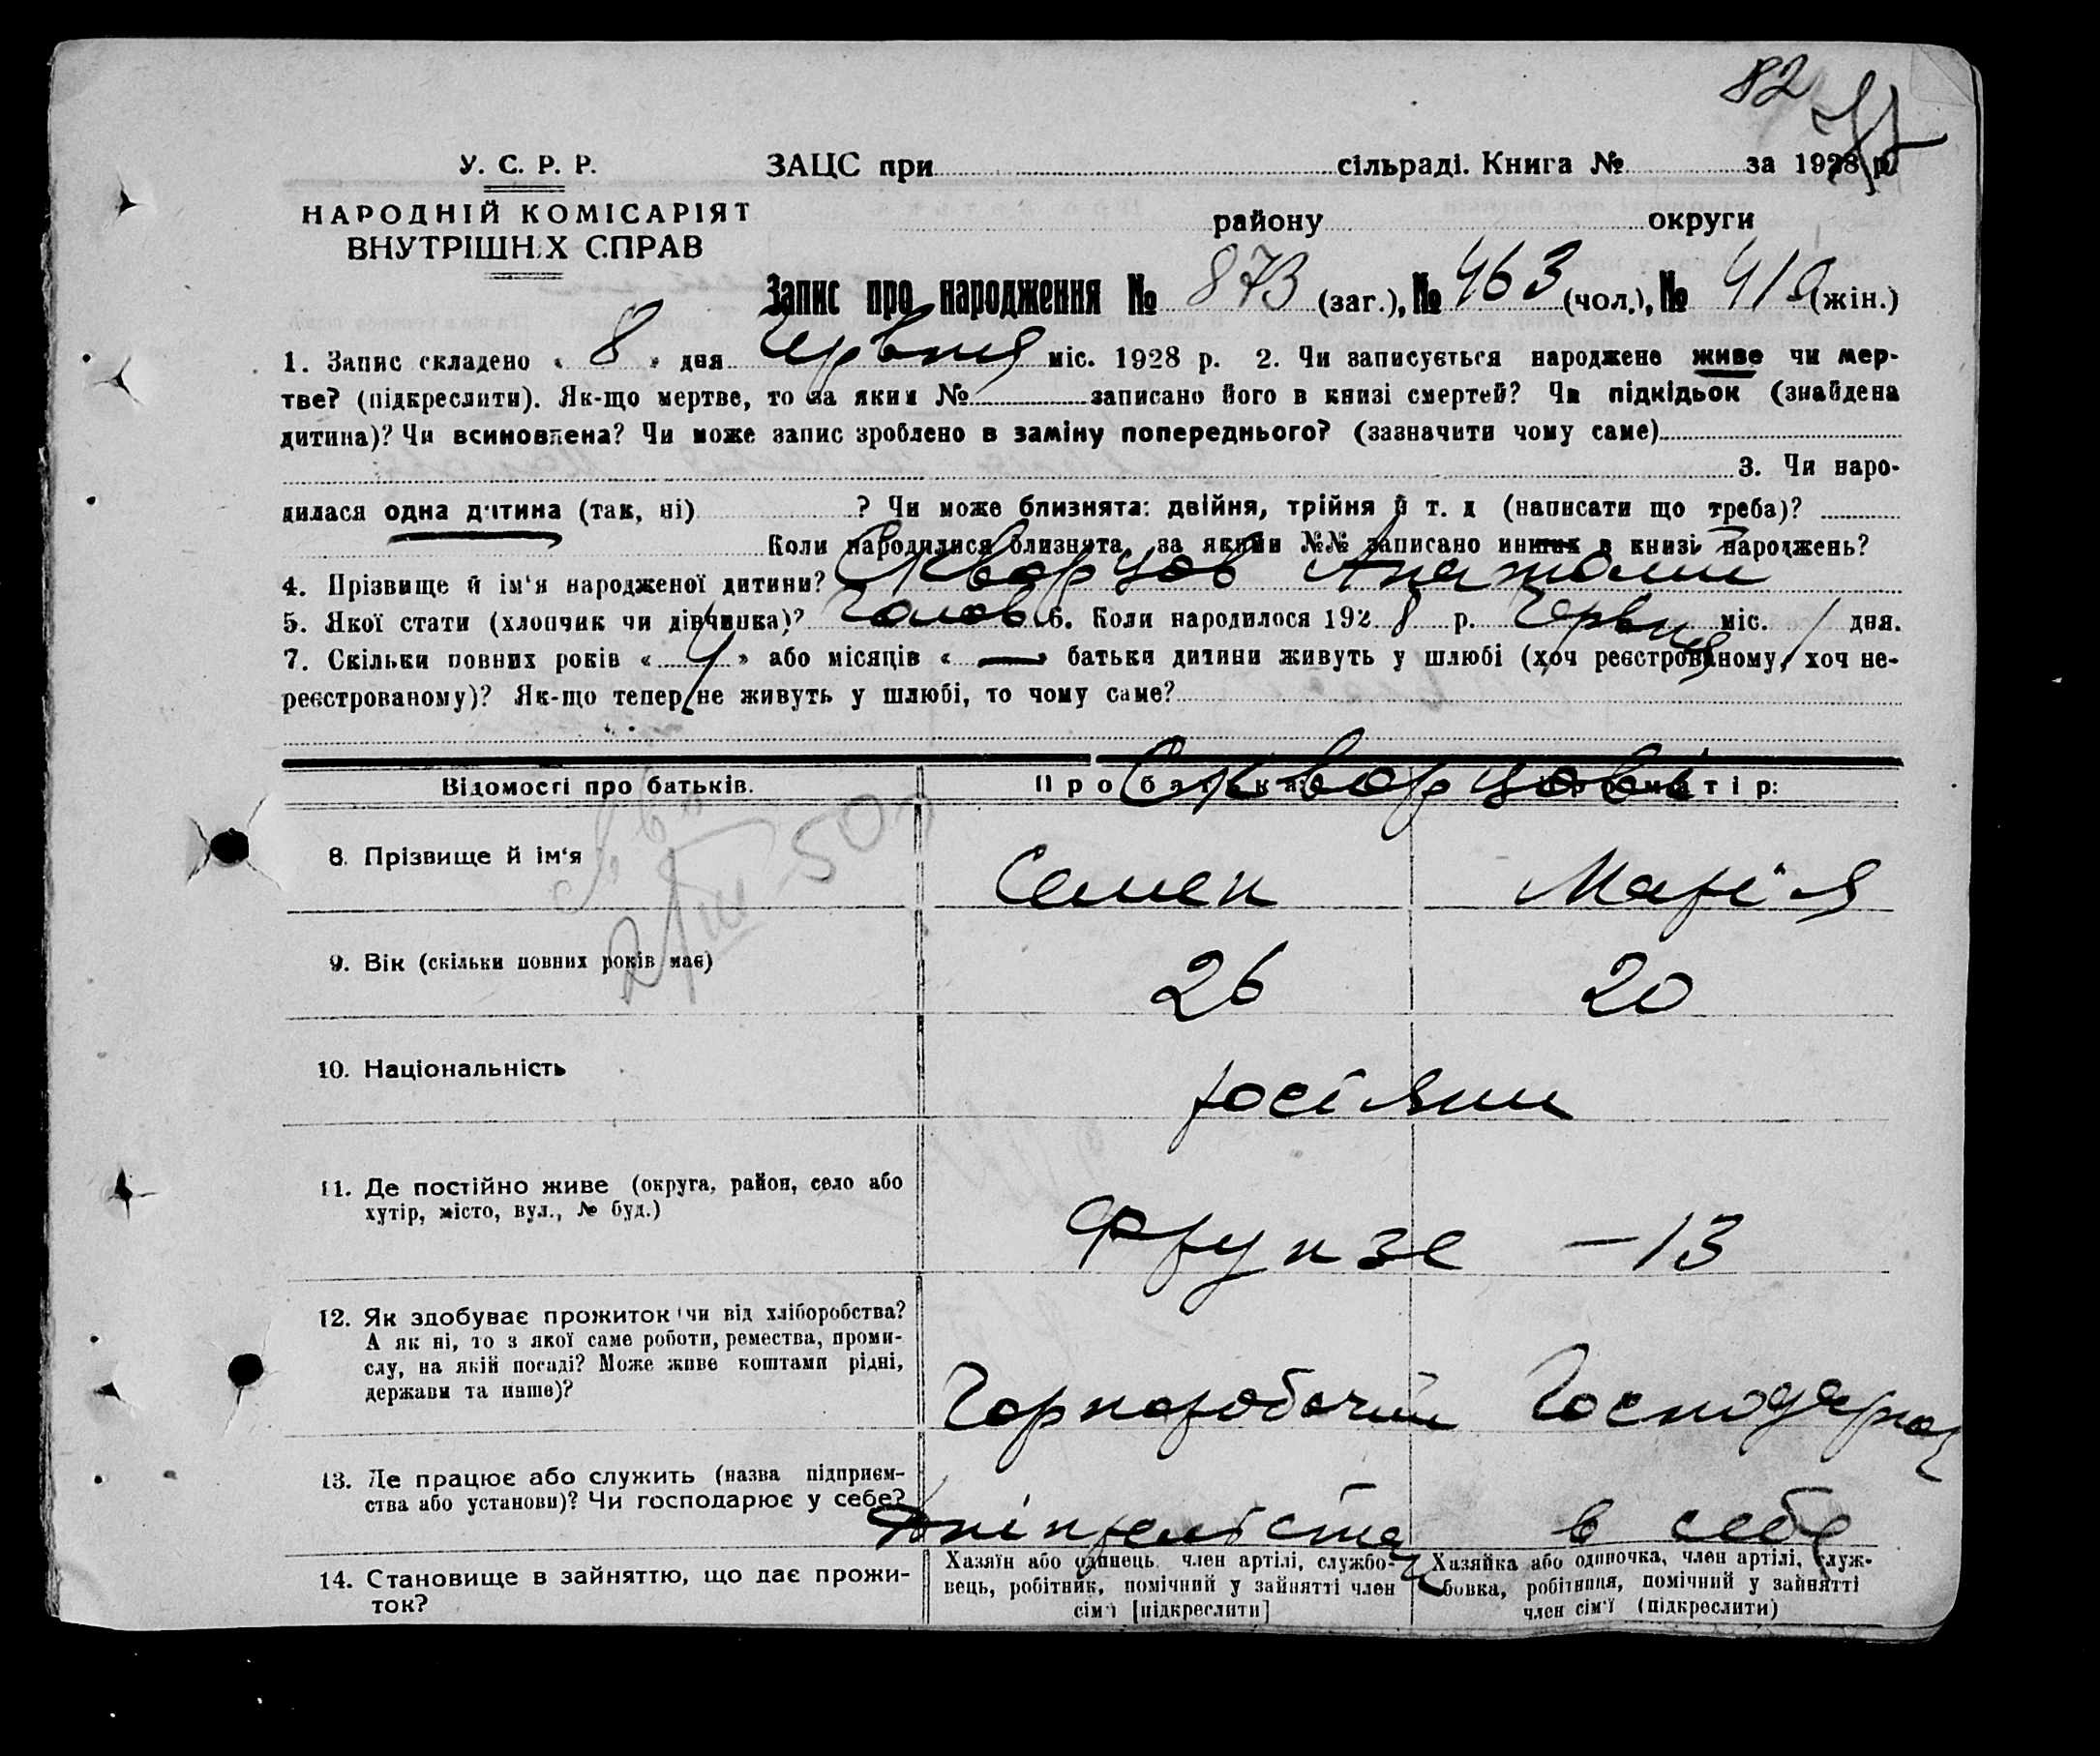 82
У. С. Р. Р. ЗАЦС при сільраді. Книга № за 1928 р.
НАРОДНІЙ КОМІСАРІЯТ
ВНУТРІШНІХ СПРАВ
району округи
Запис про народження № 873 (заг.), № 463 (чол.), № 410 (жін.)
1. Запис складено « 8 » дня Червня міс. 1928 р. 2. Чи записується народжене живе чи мер-
тве? (підкреслити). Як-що мертве, то за яким № записано його в книзі смертей? Чи підкідьок (знайдена
дитина)? Чи всиновлена? Чи може запис зроблено в заміну попереднього? (зазначити чому саме)
3. Чи наро-
дилася одна дитина (так, ні) ? Чи може близнята: двійня, трійня й т. д (написати що треба)?
Коли народилися близнята, за якими №№ записано инших в книзі народжень?
4. Прізвище й ім'я народженої дитини? Скворцов Анатолий
5. Якої стати (хлопчик чи дівчинка)? Чолов. 6. Коли народилося 1928 р. Червня міс. 1 дня.
7. Скільки повних років « 4 » або місяців « — » батьки дитини живуть у шлюбі (хоч реєстрованому, хоч не-
реєстрованому)? Як-що тепер не живуть у шлюбі, то чому саме?
Скворцови
Відомості про батьків. Про батька: Про матір:
8. Прізвище й ім'я Семен Марія
9. Вік (скільки повних років має) 26 20
10. Національність росіяни
11. Де постійно живе (округа, район, село або
хутір, місто, вул., № буд.) Фрунзе — 13
12. Як здобуває прожиток чи від хліборобства?
А як ні, то з якої саме роботи, ремества, проми-
слу, на якій посаді? Може живе коштами рідні,
держави та инше)? Чорноробочий Господарює
13. Де працює або служить (назва підприєм-
ства або установи)? Чи господарює у себе? в себе
14. Становище в зайняттю, що дає прожи-
ток?
Хазяїн або одинець член артілі, службо-
вець, робітник, помічний у зайнятті член
сім'ї [підкреслити]
Хазяйка або одиночка, член артілі, служ-
бовка, робітниця, помічний у зайнятті
член сім'ї (підкреслити)